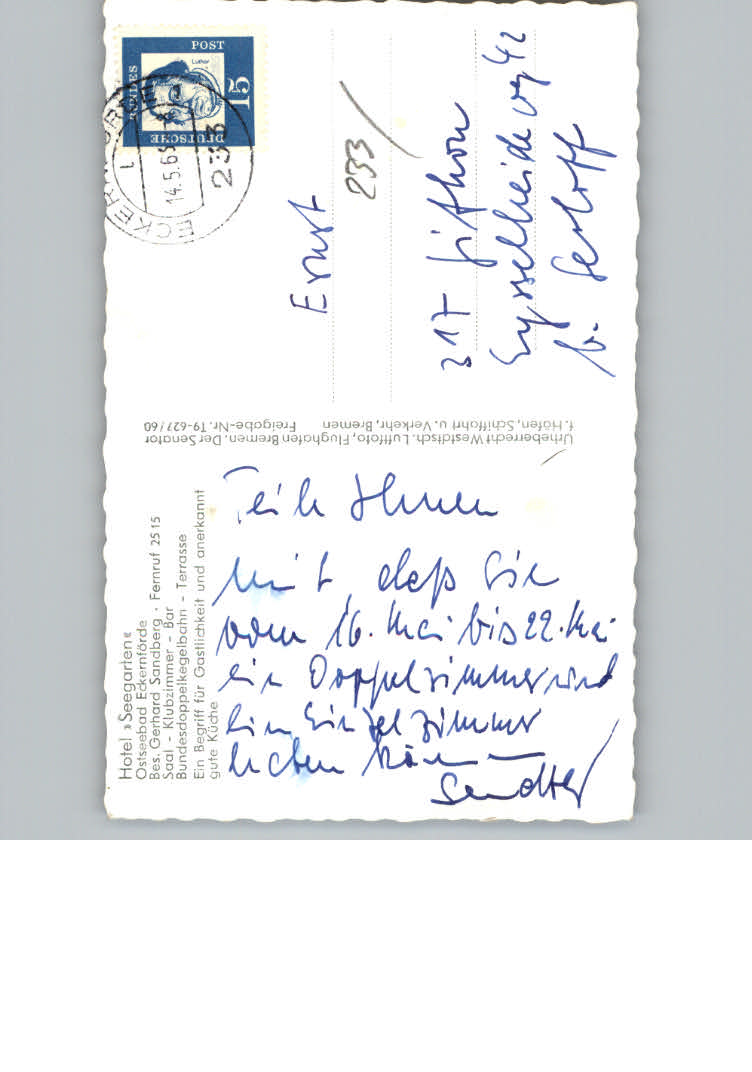 Hotel »Seegarten«
Ostseebad Eckernförde
Bes. Gerhard Sandberg · Fernruf 25 15
Saal - Klubzimmer - Bar
Bundesdoppelkegelbahn - Terrasse
Ein Begriff für Gastlichkeit und anerkannt
gute Küche
Teile Ihnen
mit daß Sie
vom 16. Mai bis 22. Mai
ein Doppelzimmer und
ein Einzelzimmer
haben
Urheberrecht Westdtsch. Luftfoto, Flughafen Bremen. Der Senator
f. Häfen, Schiffahrt u. Verkehr, Bremen Freigabe-Nr. T9-627/60
DEUTSCHE
BUNDES
POST
Luther
15
ECKERNFÖRDE
14.5.65
233
a
Ernst
233
317 Gifhorn
42
b. Gerloff